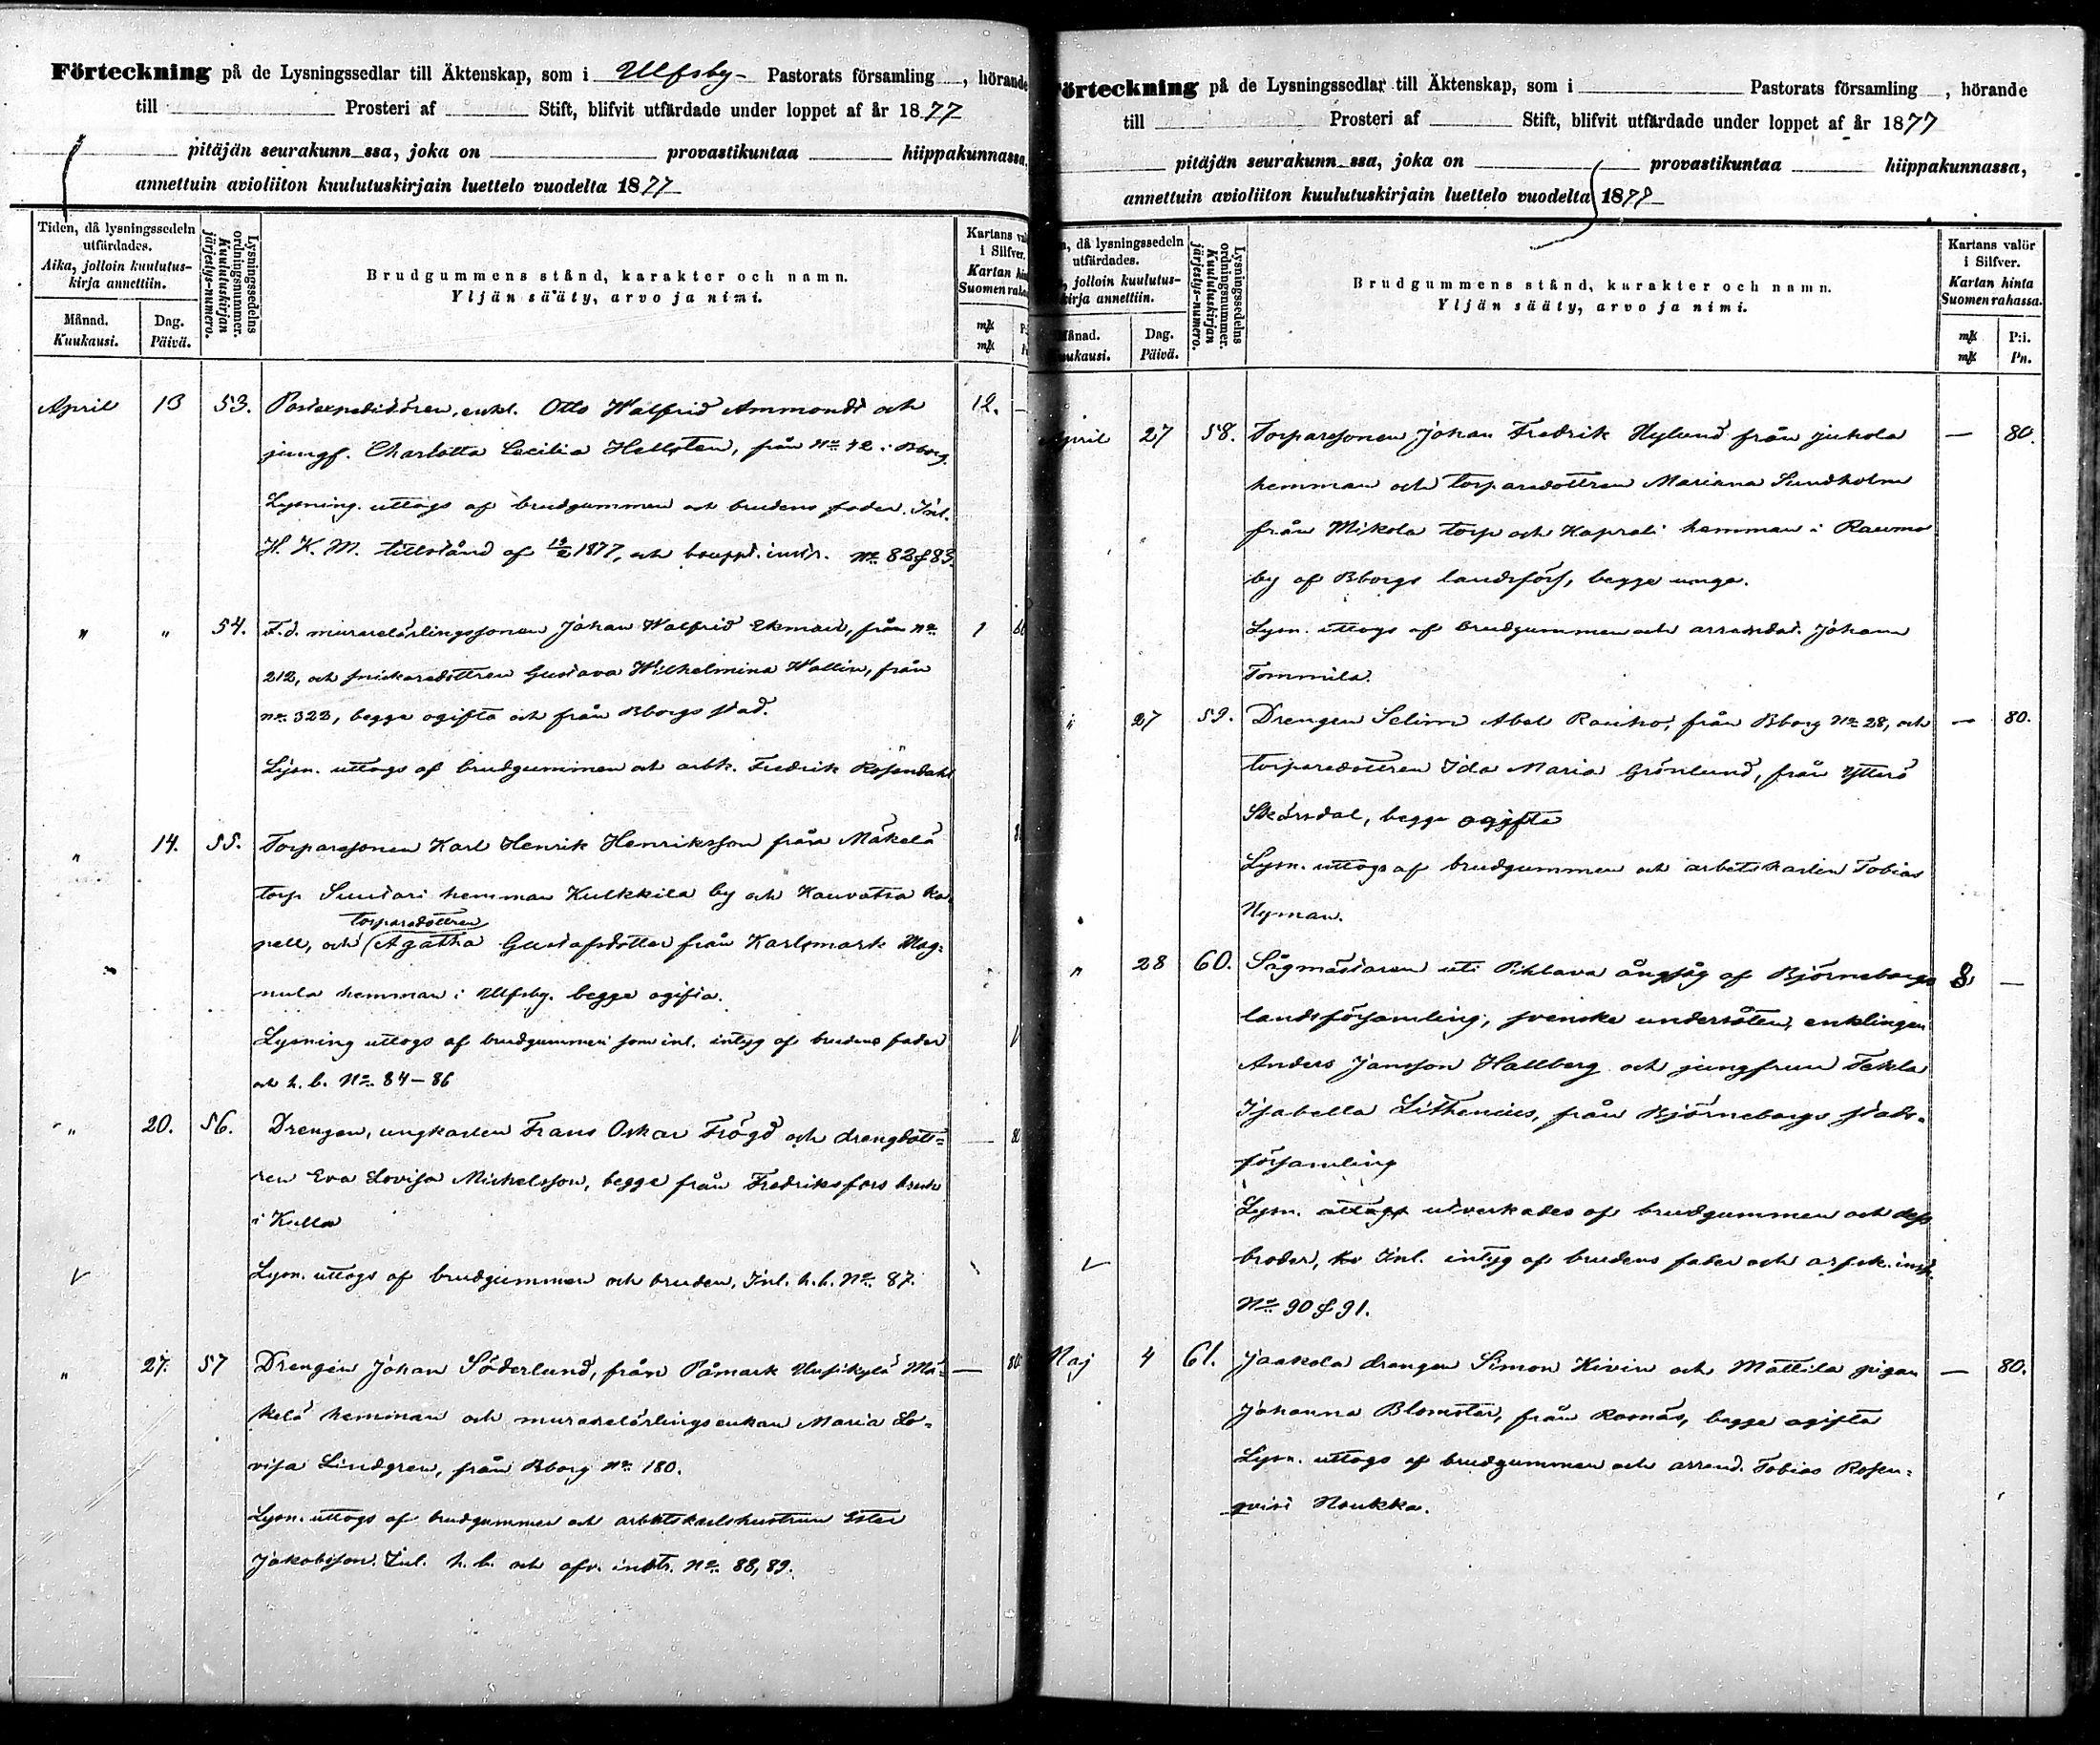 Förteckning på de Lysningssedlar till Äktenskap, som i Ulfsby- Pastorats församling, hörande
till Prosteri af Stift, blifvit utfärdade under loppet af år 1877
pitäjän seurakunn ssa, joka on provastikuntaa hiippakunnassa,
annettuin avioliiton kuulutuskirjain luettelo vuodelta 1877
Tiden, då lysningssedeln
utfärdades.
Aika, jolloin kuulutus-
kirja annettiin.
Månad.
Kuukausi.
Dag.
Päivä.
Lysningssedelns
ordningsnummer.
Kuulutuskirjan
järjestys-numero.
Brudgummens stånd, karakter och namn.
Yljän sääty, arvo ja nimi.
Kartans
i Silfver.
Kartan
Suomen
mk
mk
April 13 53. Postexpeditören, enkl. Otto Walfrid Ammondt och 12. —
jungf. Charlotta Cecilia Hellsten, från No 42 i Bborg.
Lysning uttogs af brudgummen och brudens fader. Inl.
H. K. M. tillstånd af 1877, och bouppt. instr. No 82 & 83.
" " 54. F. d. murarelärlingssonen Johan Walfrid Ekman, från no 1
212, och snickaredottren Gustava Wilhelmina Wallin, från
no 322, begge ogifta och från Bborgs stad.
Lysn. uttogs af brudgummen och arbk. Fredrik Rosendahl
" 14. 55. Torparesonen Karl Henrik Henriksson från Mäkelä
torp Suutari hemman Kulkkila by och Kauvatsa ka-
torparedottren
pell, och (Agatha Gustafsdotter från Karlsmark Mag-
nula hemman i Ulfsby. begge ogifta.
Lysning uttogs af brudgummen som inl. intyg af brudens fader
och h. b. No 84–86
" 20. 56. Drengen, ungkarlen Frans Oskar Frögd och drengdott- — 80
ren Eva Lovisa Michelsson, begge från Fredriksfors bruk
i Kulla
Lysn. uttogs af brudgummen och bruden, Inl. h. b. No 87.
" 27. 57 Drengen Johan Söderlund, från Påmark Uusikylä Mä- — 80
kelä hemman och murarelärlingsenkan Maria Lo-
visa Lindgren, från Bborg No 180.
Lysn. uttogs af brudgummen och arbetskarlshustrun Ester
Jakobsson. Inl. h. b. och afv. instr. No 88, 89.
Förteckning på de Lysningssedlar till Äktenskap, som i Pastorats församling, hörande
till Prosteri af Stift, blifvit utfärdade under loppet af år 1877
pitäjän seurakunn ssa, joka on provastikuntaa hiippakunnassa,
annettuin avioliiton kuulutuskirjain luettelo vuodelta 1877
då lysningssedeln
utfärdades.
jolloin kuulutus-
kirja annettiin.
Månad.
Kuukausi.
Dag.
Päivä.
Lysningssedelns
ordningsnummer.
Kuulutuskirjan
järjestys-numero.
Brudgummens stånd, karakter och namn.
Yljän sääty, arvo ja nimi.
Kartans valör
i Silfver.
Kartan hinta
Suomen rahassa.
mk P:i.
mk Pn.
April 27 58. Torparesonen Johan Fredrik Nylund från Juhola — 80.
hemman och torparedottren Mariana Sundholm
från Mikola torp och Kaprali hemman i Raumo
by af Bborgs landsförs, begge unga.
Lysn. uttogs af brudgummen och arrendat. Johan
Tommila.
" 27 59. Drengen Selim Abel Rauho, från Bborg No 28, och — 80.
torparedottren Ida Maria Grönlund, från Ytterö
Skärsdal, begge ogifte
Lysn. uttogs af brudgummen och arbetskarlen Tobias
Nyman.
" 28 60. Sågmästaren uti Pihlava ångsåg af Björneborgs 8 —
landsförsamling, svenske undersåten, enklingen
Anders Jansson Hallberg och jungfrun Tekla
Isabella Lithenius, från Björneborgs stads-
församling
Lysn. uttogs utverkades af brudgummen och dess
broder, Inl. intyg af brudens fader och
No 90 & 91.
Maj 4 61. Jaakola drengen Simon Kivin och Mattila pigan — 80.
Johanna Blomster, från Rosnäs, begge ogifta
Lysn. uttogs af brudgummen och arrend. Tobias Rosen-
qvist Noukka.